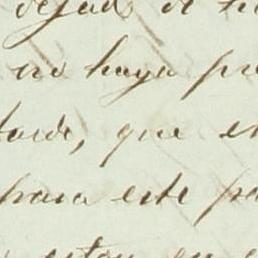 dejado de
no haya
tarde, que en
para este
estoy en